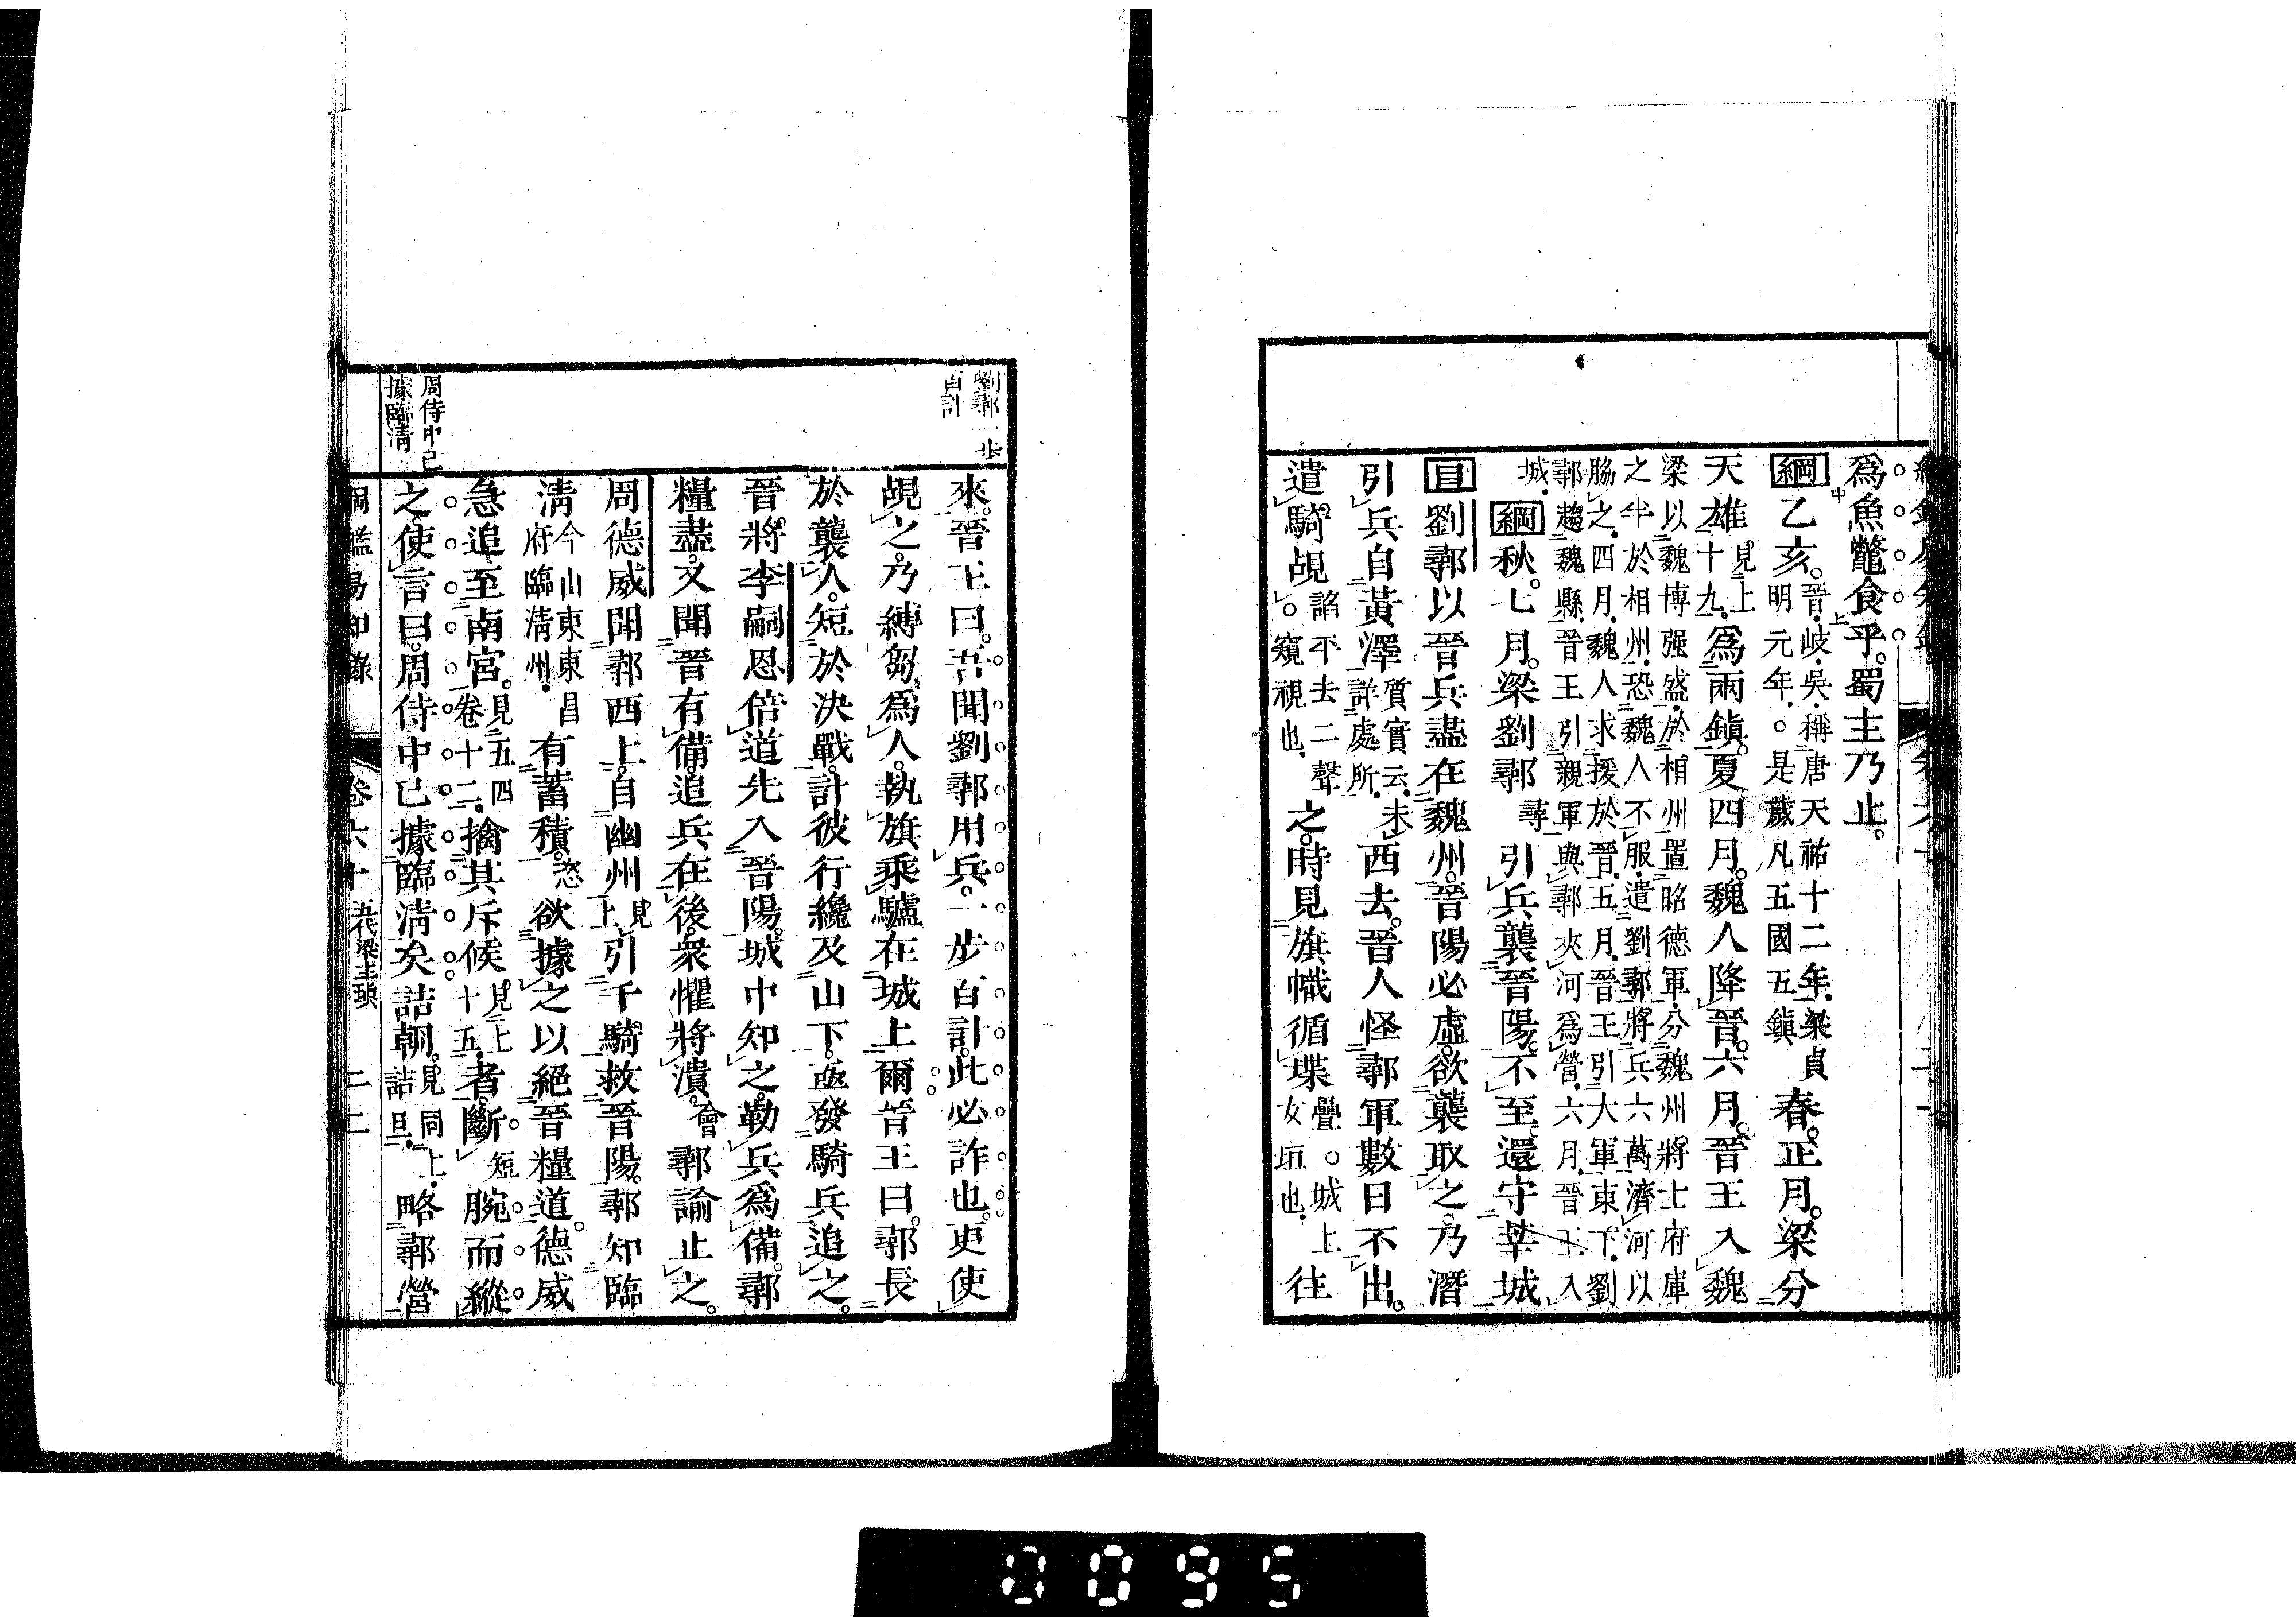 爲魚鼈食乎。蜀主乃止。
綱乙亥。晉岐吳稱唐天祐十二年。梁貞明元年。○是歲凡五國五鎮春。正月。梁分
天雄見上十九。爲兩鎮。夏四月。魏人降晉。六月。晉王入魏
梁以魏博强盛於相州置昭德軍分魏州將士府庫
之半於相州恐魏人不服遣劉鄩將兵六萬濟河以
脇之四月魏人求援於晉五月晉王引大軍東下劉
鄩趨魏縣晉王引親軍與鄩夾河爲營六月晉王入
城綱秋。七月。梁劉鄩尋引兵襲晉陽。不至。還守莘城
目劉鄩以晉兵盡在魏州。晉陽必虛。欲襲取之。乃潛
引兵自黃澤質實云未詳處所西去。晉人怪鄩軍數日不出。
遣騎覘諂平去二聲○窺視也之。時見旗幟循堞疊○城上女垣也往
劉鄩一步百計
來。晉王曰。吾聞劉鄩用兵。一步百計。此必詐也。更使
覘之。乃縛芻爲人。執旗乘驢在城上爾。晉王曰。鄩長
於襲人。短於決戰。計彼行纔及山下。亟發騎兵追之。
晉將李嗣恩倍道先入晉陽。城中知之。勒兵爲備。鄩
糧盡。又聞晉有備。追兵在後。衆懼將潰。會鄩諭止之。
周德威聞鄩西上。自幽州見上引千騎救晉陽。鄩知臨
淸今山東東昌府臨淸州有蓄積。恣欲據之以絕晉糧道。德威
急追至南宮。見五四卷十二擒其斥候見上十五者。斷短腕而縱
周侍中已據臨淸
之。使言曰。周侍中已據臨淸矣。詰朝。見同上詰旦略鄩營
綱鑑易知錄 卷六十 五代梁主瑱 二二